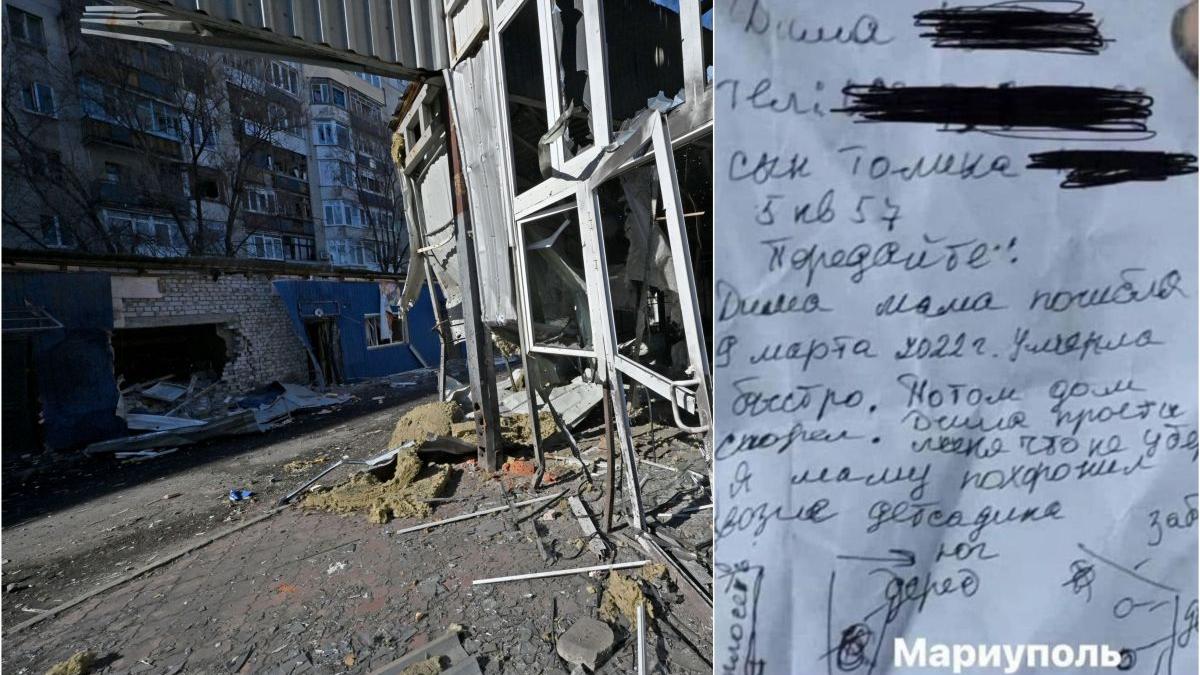 Дима
тел:
сын Толика
5 кв 57
Передайте!
Дима мама погибла
9 марта 2022г. Умерла
быстро. Потом дом
сгорел. Дима прости
меня что не убе
Я маму похоронил
возле детсадика
заб
юг
дерев
Мариуполь